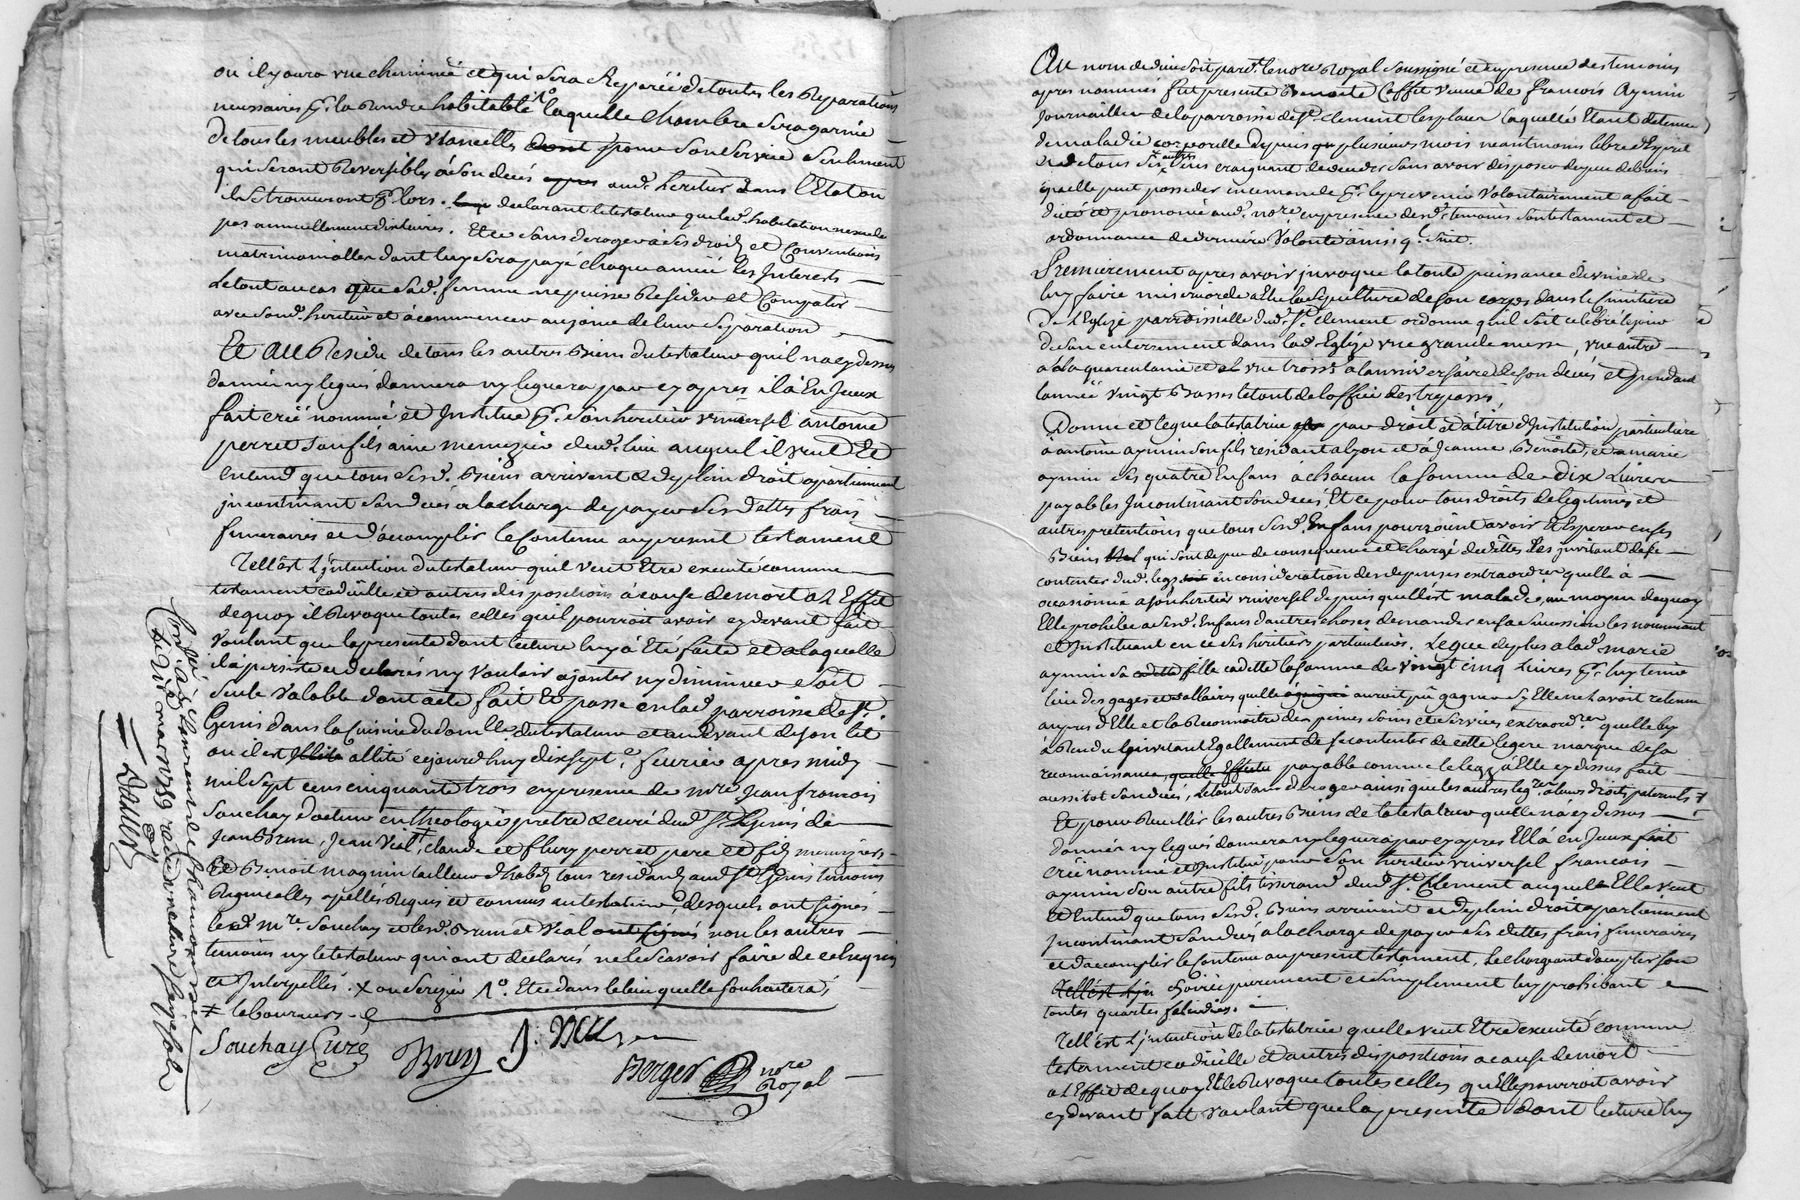 ou il y aura une cheminée et qui sera Reparée de toutes les Reparations
necessaires pr. la Rendre habitable 1o laquelle chambre sera garnie
De tous les meubles et Utancilles dont pour Son Service Seulement
qui Seront Reversibles à Son decés apres aud. heritier dans l'Etat ou
ils Se trouveront pr. lors. declarant le testateur que lad. habitation
pas annuellement dix livres. Et ce Sans deroger a Ses droits et Conventions
matrimonialles dont luy Sera payé chaque année les Interests
Le tout au cas que Sad. femme ne puisse Resider et Compatir
avec Sond. heritier et à commencer au jour de leur Separation
Et AU Residu de tous les autres Biens du testateur qu'il n'a cy dessus
donnés ny legués donnera ny leguera par cy apres il a En Iceux
fait créé nommé et Institué pr. Son heritier universel antoine
perret Son fils ainé menuzier dud. lieu auquel il veut Et
entend que tous Sesd. Biens arrivent & de plein droit apartiennent
incontinant Son decés a la charge de payer Ses dettes frais
funeraires et d'acomplir le Contenu au present testament
Tell'est L'jntention du testateur qu'il veut Etre executé comme
testament codicille et autres dispositions à cause de mort a L'Effet
de quoy il Revoque toutes celles qu'il pourroit avoir cy devant fait
Voulant que la presente dont lecture luy à Eté faite et a laquelle
il a persisté et declarés ny Vouloir ajouter ny diminuer Soit
Seule Valable dont acte fait Et passé en lad. parroisse de St.
Genis dans la Cuisine du domlle. du testateur et au devant de son lit
ou il est allité cejourd'huy dixsepte. fevrier apres midy
mil Sept cens cinquante trois en presence de mre Jean francois
Souchay docteur en theologie pretre & curé dud. St. Genis de
Jean Brun, Jean Vial ‡, claude et fleury perret pere et fils menuziers
Et Benoit magnin tailleur d'habits tous residands aud. St. Genis temoins
Requis et connus au testateur, desquels ont Signés
led. mre. Souchay et lesd. Brun et Vial ont Signés non les autres
temoins ny le testateur qui ont declarés ne le Scavoir faire de ce Requis
et Interpellés. x ou Serozier 1o. Et ce dans le lieu quelle Souhaitera,
‡ laboureurs.
Souchay Curé Brun J: Vial
Berger nore Royal
Au nom de dieu Soit pard. le nore Royal Soussigné et en presence des temoins
apres nommés fut presente Benoite Caffet veuve de francois Aymin
Journallier de la parroisse de St. clement les places laquelle Etant detenue
de maladie corporelle depuis plusieurs mois neantmoins libre d'Esprit
& de tous Ses autres Sens craignant de deceder Sans avoir disposé du peu de biens
quelle peut posseder en ce monde pr. le prevenir Volontairement a fait
dicté et prononcé aud. nore. en presence desd. temoins Son testament et
ordonnance de derniere Volonté ainsi q. Suit.
Premierement apres avoir jnvoque la toute puissance divine de
luy faire misericorde a Elu la Sepulture de Son corps dans le Cimitiere
De L'Eglize parroissielle dud. St. Clement ordonne qu'il Soit celebré le jour
de Son enterrement dans lad. Eglize une grande messe, une autre
a la quarentaine et une trois. à lanniversaire de Son decés et pendant
lannée vingt Basses le tout de l'office des trepassés,
Donne et legue la testatrice par droit et à titre d'Institution particuliere
à antoine aymin Son fils residant a lyon et à Jeanne, Benoite, et marie
aymin Ses quatre Enfans à chacun la Somme de Dix Livres
payables Incontinant Son decés, Et ce pour tous droits de legitimes et
autres pretentions que tous Sesd. Enfans pourroint avoir Et Esperer en Ses
Biens qui Sont de peu de consequence et chargé de dettes les jnvitant de Se
contenter dud. legz en consideration des depenses extraordres quelle à
occasionné a Son heritier universel depuis quell'est malade, au moyen de quoy
Elle prohibe a Sesd. Enfans d'autres choses demander en Sa Succession les nommant
et Instituant en ce Ses heritiers particuliers. Legue de plus a lad. marie
aymin Sa cadette fille cadette la Somme de vingt cinq Livres pr. luy tenir
lieu des gages et Sallaires quelle auroit pû gagner Sy Elle ne l'avoit retenue
aupres d'Elle et la Reconnoitre des peines Soins et Services extraordres quelle luy
à Rendu L'jnvitant Egallement de Se contenter de cette legere marque de Sa
reconnoissance, quelle Effectu payable comme le legz à Elle cy dessus fait
aussitot Son decés, Le tout Sans deroger ainsi que les autres legres, a leurs droits paternels
Et pour Recuillir les autres Biens de la testatrice quelle n'a cy dessus
donnés ny legués donnera ny leguera par cy apres Ell'a en Iceux fait
créé nommé et Institué pour Son heritier universel francois
aymin Son autre fils tisserand dud. St. Clement auquel Elle veut
et Entend que tous Sesd. Biens arrivent et de plein droit apartiennent
Incontinant Son decés a la charge de payer Ses dettes frais funeraires
et d'acomplir le Contenu au present testament, Le chargeant d'acomplir Son
Tell'est L'jn hoirie purement et Simplement luy prohibant
toutes quartes falcidies.
Tell'est L'jntention de la testatrice quelle veut Etre executé comme
testament codicille et d'autres dispositions a cause de mort
a L'Effet de quoy Elle Revoque toutes celles qu'Elle pourroit avoir
cy devant fait Voulant que la presente dont lecture luy